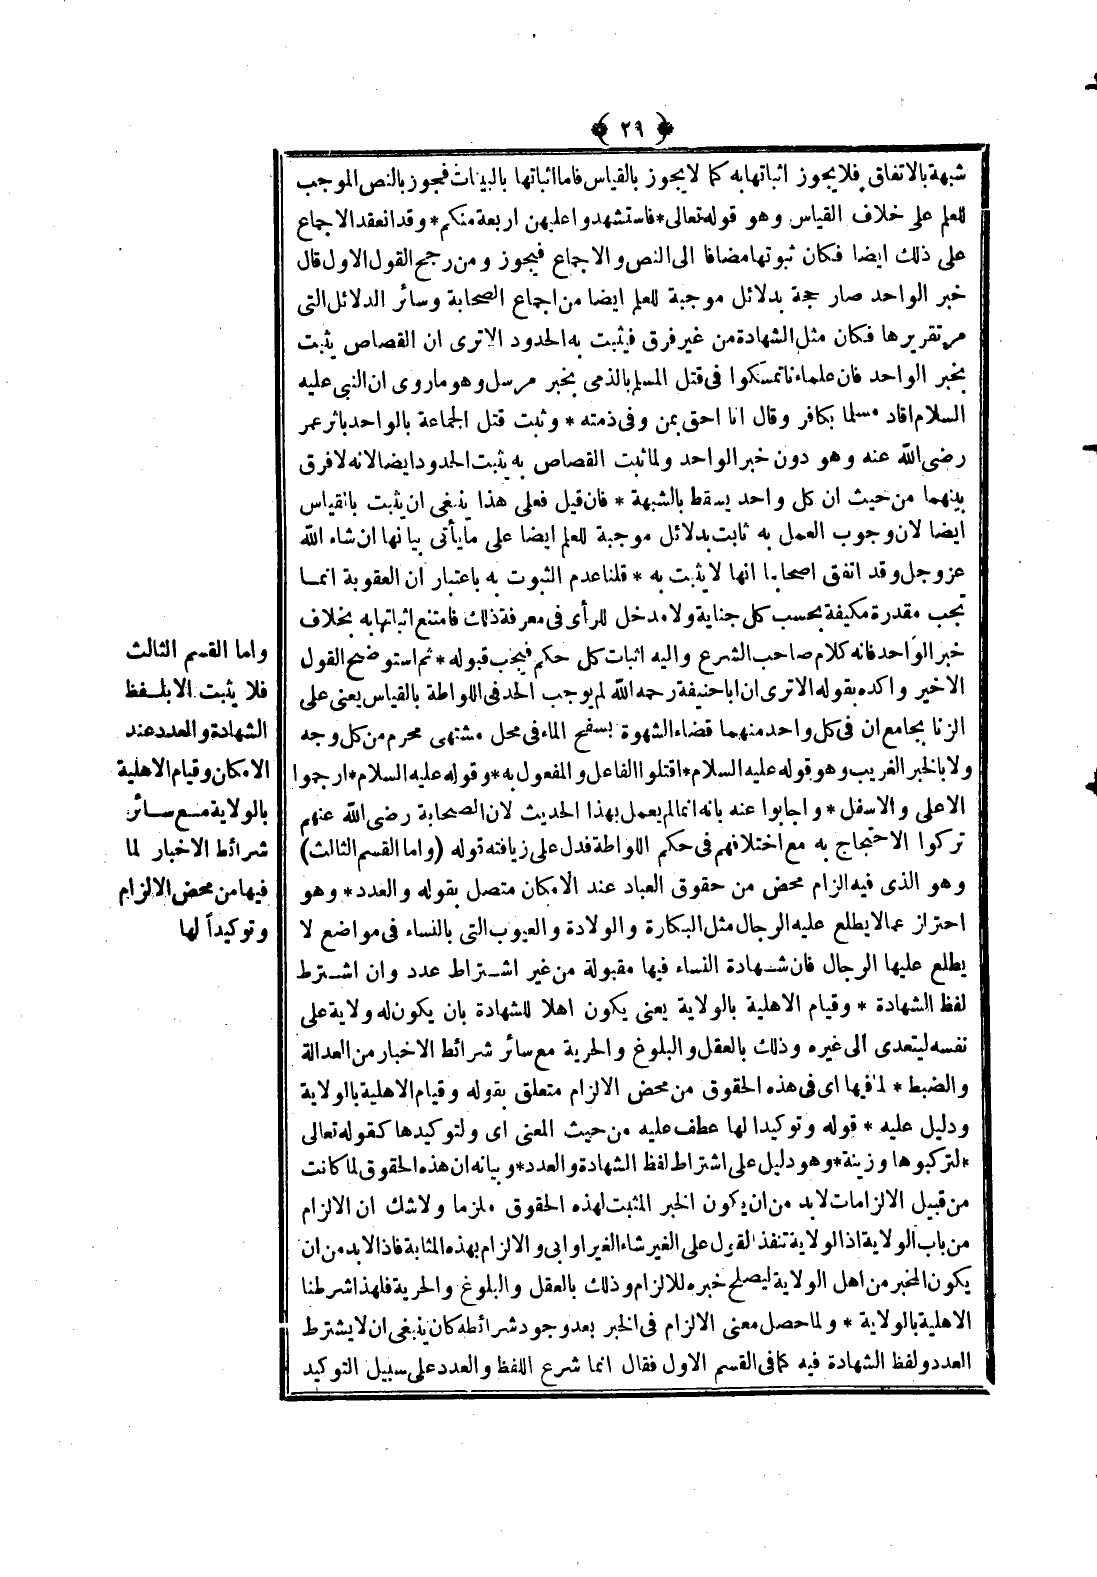 ﴿ ٢٩ ﴾
شبهة بالاتفاق فلا يجوز اثباتها به كما لا يجوز بالقياس فاما اثباتها بالبينات فيجوز بالنص الموجب
للعلم على خلاف القياس وهو قوله تعالى * فاستشهدوا عليهن اربعة منكم * وقد انعقد الاجماع
على ذلك ايضا فكان ثبوتها مضافا الى النص والاجماع فيجوز ومن رجح القول الاول قال
خبر الواحد صار حجة بدلائل موجبة للعلم ايضا من اجماع الصحابة وسائر الدلائل التى
مر تقريرها فكان مثل الشهادة من غير فرق فيثبت به الحدود الاترى ان القصاص يثبت
بخبر الواحد فان علماءنا تمسكوا فى قتل المسلم بالذمى بخبر مرسل وهو ماروى ان النبى عليه
السلام اقاد مسلما بكافر وقال انا احق بمن وفى ذمته * وثبت قتل الجماعة بالواحد باثر عمر
رضى الله عنه وهو دون خبر الواحد ولما ثبت القصاص به يثبت الحدود ايضا لانه لا فرق
بينهما من حيث ان كل واحد يسقط بالشبهة * فان قيل فعلى هذا ينبغى ان يثبت بالقياس
ايضا لان وجوب العمل به ثابت بدلائل موجبة للعلم ايضا على ما يأتى بيانها ان شاء الله
عز وجل وقد اتفق اصحابنا انها لا يثبت به * قلنا عدم الثبوت به باعتبار ان العقوبة انما
تجب مقدرة مكيفة بحسب كل جناية ولا مدخل للرأى فى معرفة ذلك فامتنع اثباتها به بخلاف
خبر الواحد فانه كلام صاحب الشرع واليه اثبات كل حكم فيجب قبوله * ثم استوضح القول
الاخير واكده بقوله الاترى ان اباحنيفة رحمه الله لم يوجب الحد فى اللواطة بالقياس يعنى على
الزنا بجامع ان فى كل واحد منهما قضاء الشهوة بسفح الماء فى محل مشتهى محرم من كل وجه
ولا بالخبر الغريب وهو قوله عليه السلام * اقتلوا الفاعل والمفعول به * وقوله عليه السلام * ارجموا
الاعلى والاسفل * واجابوا عنه بانه انما لم يعمل بهذا الحديث لان الصحابة رضى الله عنهم
تركوا الاحتجاج به مع اختلافهم فى حكم اللواطة فدل على زيافته قوله (واما القسم الثالث)
وهو الذى فيه الزام محض من حقوق العباد عند الامكان متصل بقوله والعدد * وهو
احتراز عما لا يطلع عليه الرجال مثل البكارة والولادة والعيوب التى بالنساء فى مواضع لا
يطلع عليها الرجال فان شهادة النساء فيها مقبولة من غير اشتراط عدد وان اشترط
لفظ الشهادة * وقيام الاهلية بالولاية يعنى يكون اهلا للشهادة بان يكون له ولاية على
نفسه ليتعدى الى غيره وذلك بالعقل والبلوغ والحرية مع سائر شرائط الاخبار من العدالة
والضبط * لما فيها اى فى هذه الحقوق من محض الالزام متعلق بقوله وقيام الاهلية بالولاية
ودليل عليه * قوله وتوكيدا لها عطف عليه من حيث المعنى اى ولتوكيدها كقوله تعالى
* لتركبوها وزينة * وهو دليل على اشتراط لفظ الشهادة والعدد * وبيانه ان هذه الحقوق لما كانت
من قبيل الالزامات لابد من ان يكون الخبر المثبت لهذه الحقوق ملزما ولا شك ان الالزام
من باب الولاية اذ الولاية تنفذ القول على الغير شاء الغير او ابى والالزام بهذه المثابة فاذا لابد من ان
يكون المخبر من اهل الولاية ليصلح خبره للالزام وذلك بالعقل والبلوغ والحرية فلهذا شرطنا
الاهلية بالولاية * ولما حصل معنى الالزام فى الخبر بعد وجود شرائطه كان ينبغى ان لا يشترط
العدد ولفظ الشهادة فيه كما فى القسم الاول فقال انما شرع اللفظ والعدد على سبيل التوكيد
واما القسم الثالث
فلا يثبت الا بلفظ
الشهادة والعدد عند
الامكان وقيام الاهلية
بالولاية مع سائر
شرائط الاخبار لما
فيها من محض الالزام
وتوكيداً لها